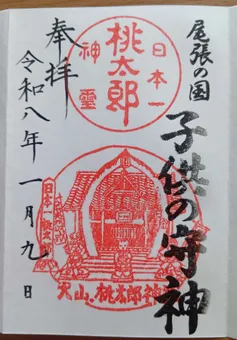 尾張の国
子供の守神
日本一
桃太郎
神霊
犬山・桃太郎神
奉拝
令和八年一月九日